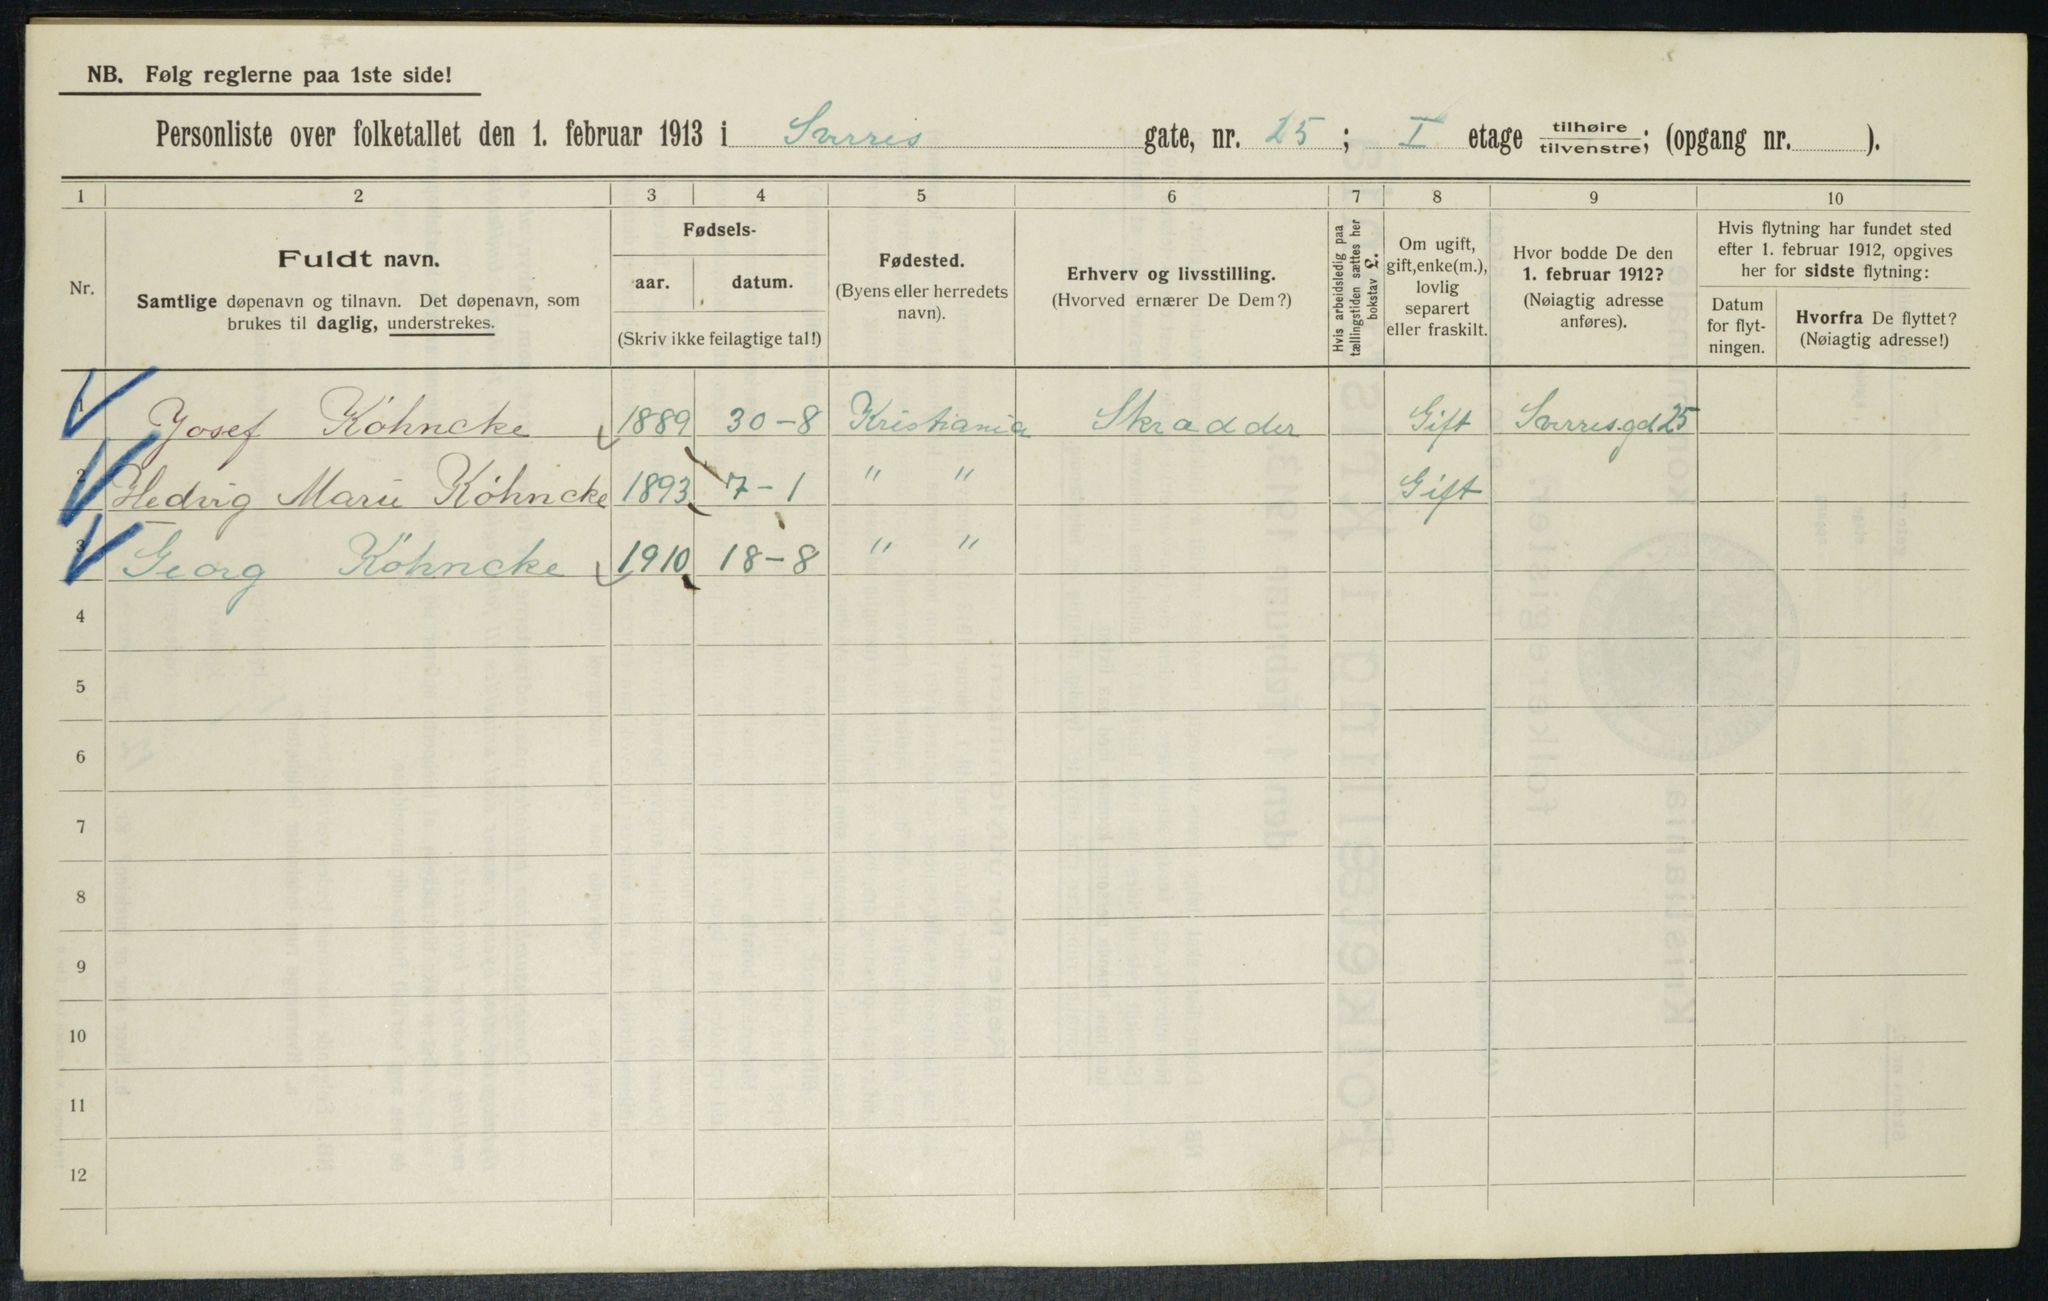 NB. Følg reglerne paa 1ste side!
Personliste over folketallet den 1. februar 1913 i Sverres gate, nr. 25; I etage tilhøire tilvenstre; (opgang nr. ).
1 2 3 4 5 6 7 8 9 10
Nr.
Fuldt navn.
Samtlige døpenavn og tilnavn. Det døpenavn, som
brukes til daglig, understrekes.
Fødsels-
aar. datum.
(Skriv ikke feilagtige tal!)
Fødested.
(Byens eller herredets
navn).
Erhverv og livsstilling.
(Hvorved ernærer De Dem?)
Hvis arbeidsledig paa
tællingstiden sættes her
bokstav L.
Om ugift,
gift, enke(m.),
lovlig
separert
eller fraskilt.
Hvor bodde De den
1. februar 1912?
(Nøiagtig adresse
anføres).
Hvis flytning har fundet sted
efter 1. februar 1912, opgives
her for sidste flytning:
Datum
for flyt-
ningen.
Hvorfra De flyttet?
(Nøiagtig adresse!)
1 Josef Köhncke 1889 30-8 Kristiania Skrædder Gift Sverresgd 25
2 Hedvig Marie Köhncke 1893 7-1 " " Gift
3 Georg Köhncke 1910 18-8 " "
4
5
6
7
8
9
10
11
12